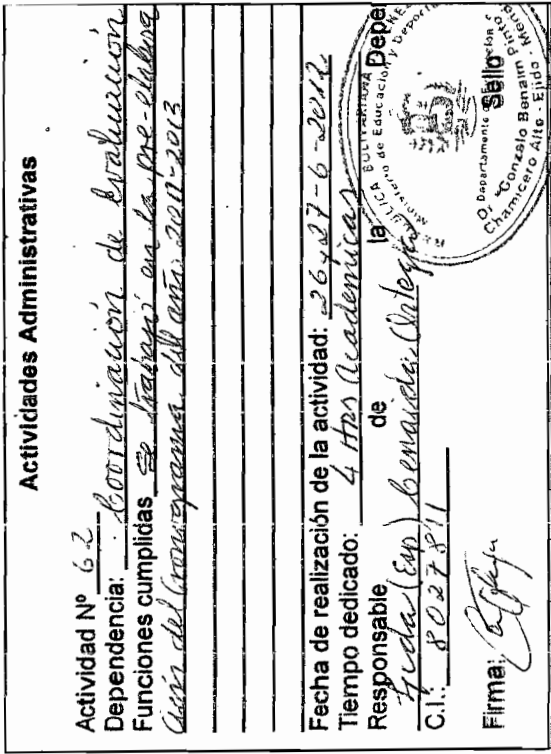 Actividades Administrativas
Actividad Nº 62
Dependencia: Coordinación de Evaluación
Funciones cumplidas Se trabajo en la pre-elabora
ción del Cronograma del año 2012-2013
Fecha de realización de la actividad: 26 y 27-6-2012
Tiempo dedicado: 4 Hrs Academicas
Responsable de la Depe
(Enp) Cenaida Ortega
C.I.: 8027811
Firma:
REPÚBLICA BOLIVARIANA
Ministerio de Educación y Deporte
Departamento de Evaluación
Sello
Dr "Gonzalo Benaim Pinto
Chamicero Alto - Ejido - Merida